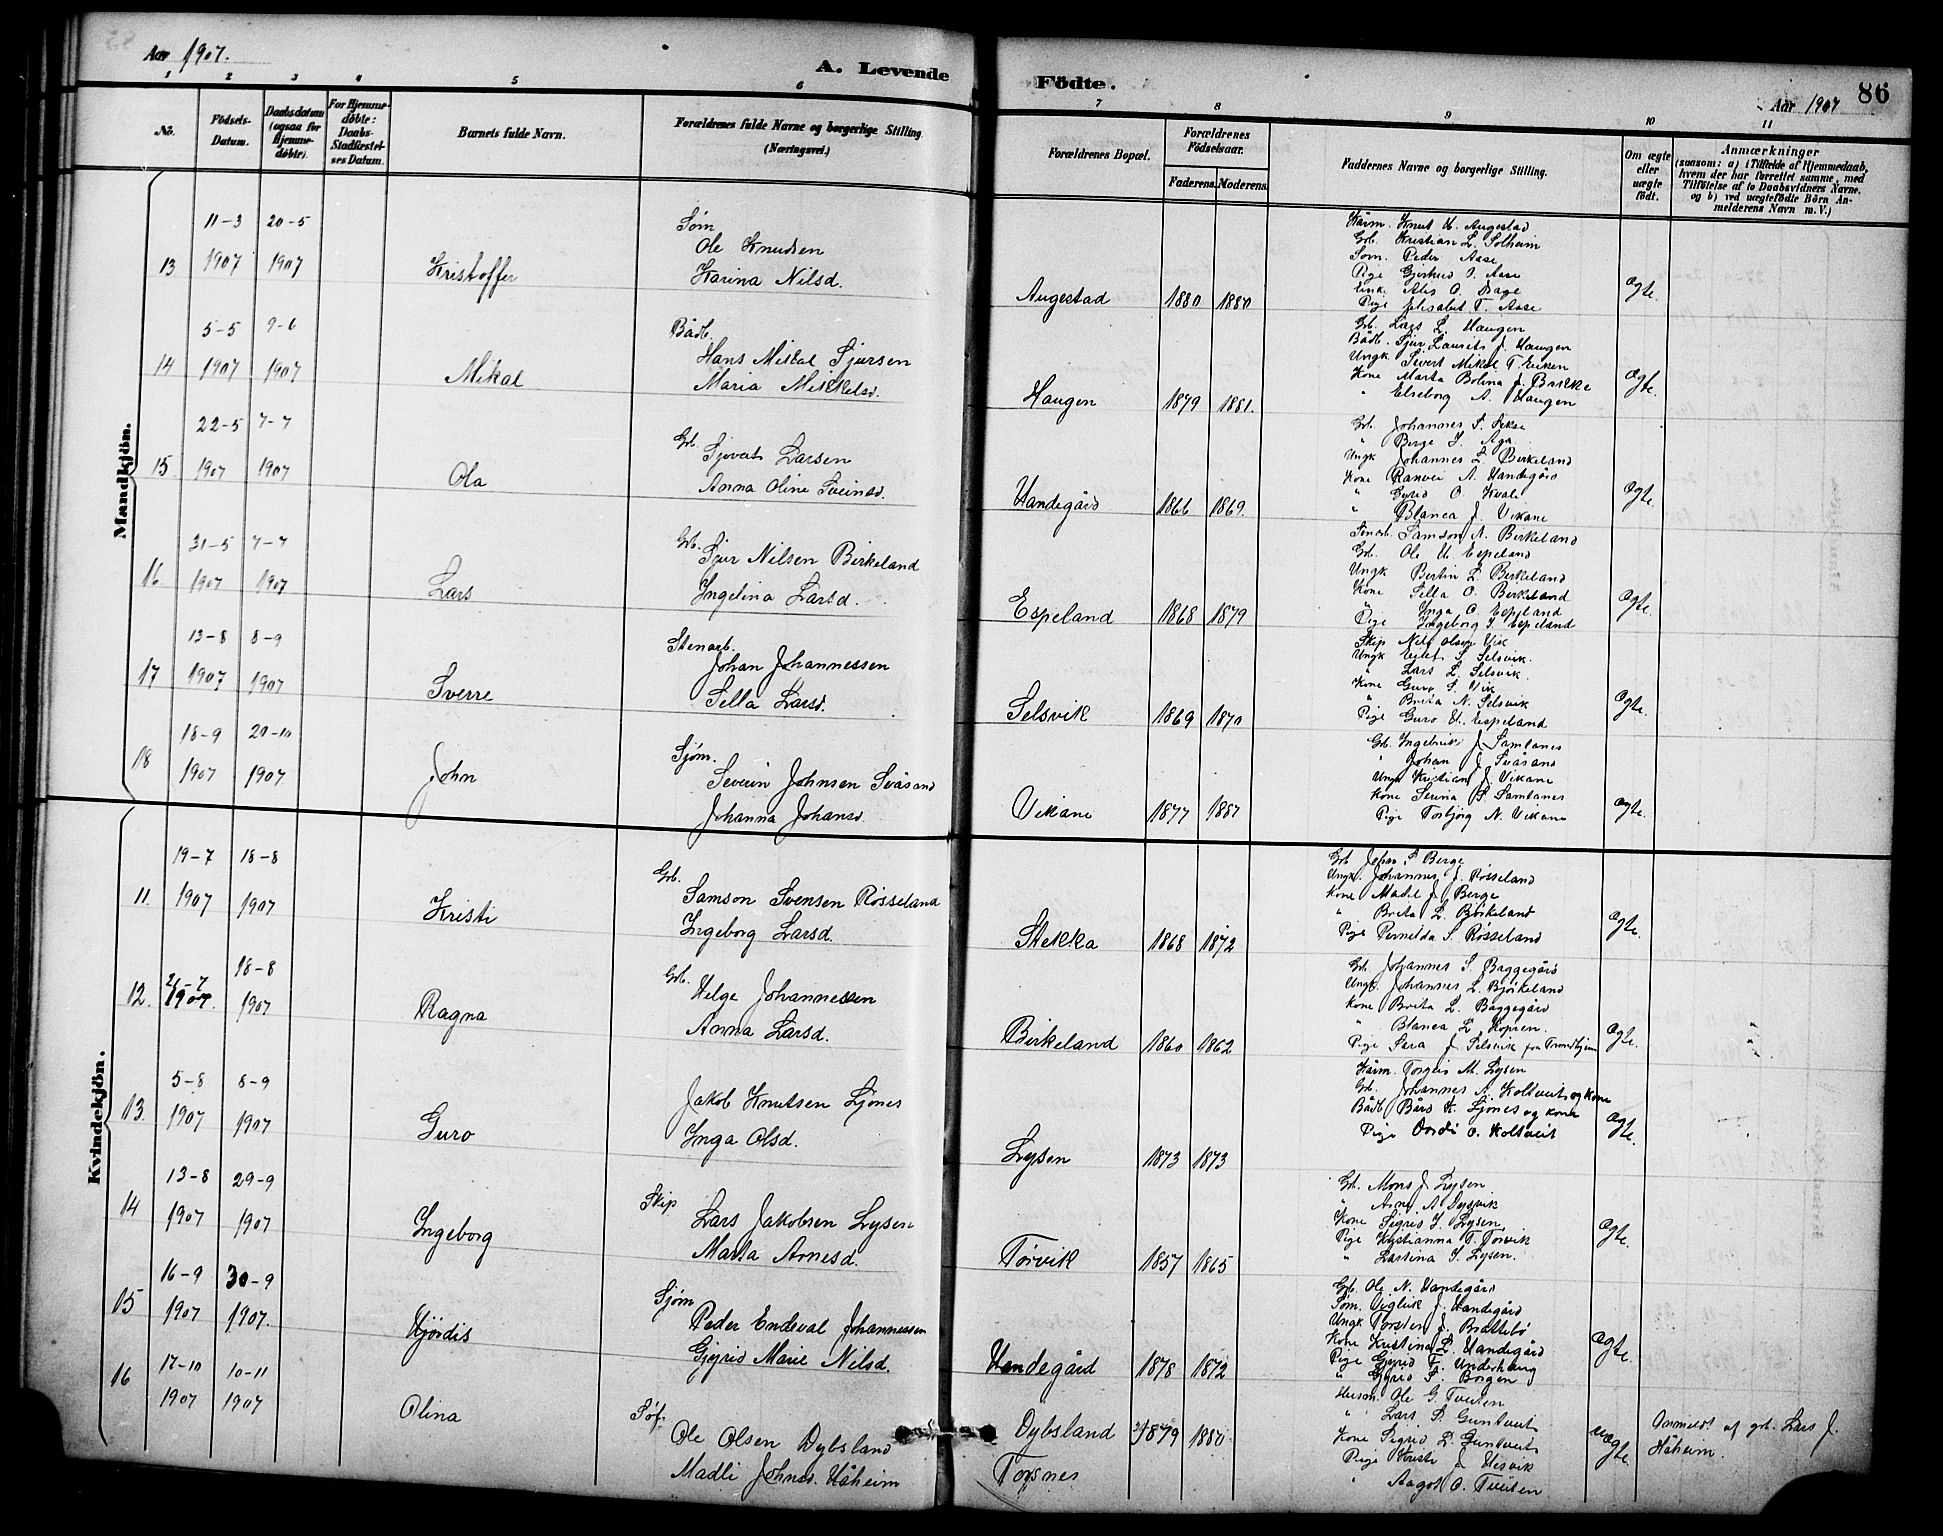 Aar 1907.
A. Levende Födte.
Aar 1907
86
1 2 3 4 5 6 7 8 9 10 11
No.
Födsels-Datum.
Daabsdatum (ogsaa for Hjemmedöbte).
For Hjemmedöbte: Daabs-Stadfæstelses Datum.
Barnets fulde Navn.
Forældrenes fulde Navne og borgerlige Stilling. (Næringsvei.)
Forældrenes Bopæl.
Forældrenes Födselsaar.
Faderens. Moderens.
Faddernes Navne og borgerlige Stilling.
Om ægte eller uægte födt.
Anmærkninger
(saasom: a) i Tilfælde af Hjemmedaab, hvem der har forrettet samme, med Tilföielse af to Daabsvidners Navne. og b) ved uægtefödte Börn Anmelderens Navn m. V.)
Mandkjön.
13
11-3 1907
20-5 1907
Kristoffer
Søm
Ole Knudsen
Karina Nilsd.
Augestad
1880 1880
Knut H. Augestad
Grb. Kristian L. Solheim
Søm. Peder Aase
Pige Gjertrud O. Aase
Pige Elisabet T. Aase
Ægte.
14
5-5 1907
9-6 1907
Mikal
Bådb.
Hans Mikal Sjursen
Maria Mikkelsd.
Haugen
1879 1881.
Grb. Lars L. Haugen
Bådb. Sjur Laurits J. Haugen
Ungk Sivert Mikal T. Eiken
Kone Marta Bolina J. Bakke
" Elseborg A. Haugen
Ægte.
15
22-5 1907
7-7 1907
Ola
Grb.
Sjovat Larsen
Anna Oline Sveinsd.
Handegård
1866 1869.
Grb. Johannes S. Sekse
" Børge J. Aga
Ungk Johannes L. Birkeland
Kone Ranvei A. Handegård
" Gyrid O. Kvale
" Blanca J. Vikane
Ægte.
16
31-5 1907
7-7 1907
Lars
Grb.
Sjur Nilsen Birkeland
Ingelina Larsd.
Espeland
1868 1879
Stenarb. Samson A. Birkeland
Grb. Ole H. Espeland
Ungk Bertin L. Birkeland
Kone Sella O. Birkeland
" Inga O. Espeland
Pige Ingeborg S. Espeland
Ægte.
17
13-8 1907
8-9 1907
Sverre
Stenarb.
Johan Johannessen
Sella Larsd.
Selsvik
1869 1870
Skip Nils Olsen Vik
Ungk Eilef S. Selsvik.
" Lars L. Selsvik.
Kone Guro S. Vik
" Brita N. Selsvik
Pige Guro H. Espeland
Ægte.
18
18-9 1907
20-10 1907
John
Sjøm.
Severin Johnsen Svåsand
Johanna Johansd.
Vikane
1877 1887
Grb. Ingebrikt J. Samlanes
" Johan J. Svåsand
Ungk Kristian J. Vikane
Kone Serina S. Samlanes
Pige Torbjørg N. Vikane
Ægte.
Kvindekjön.
11.
19-7 1907
18-8 1907
Kristi
Grb.
Samson Svensen Røsseland
Ingeborg Larsd.
Stekka
1868 1872
Grb Johan S. Berge
Ungk. Johannes J. Røsseland
Kone Madel J. Berge
" Brita L. Bjørkeland
Pige Pernilda S. Røsseland
Ægte.
12.
2/5-7 1907.
18-8 1907
Ragna
Grb.
Helge Johannessen
Anna Larsd.
Birkeland
1860 1862
Grb. Johannes S. Baggegård
Ungk. Johannes L. Bjørkeland
Kone Brita L. Baggegård
" Blanca L. Kopren.
Pige Sara J. Selsvik fra Trondhjem
Ægte.
13.
5-8 1907
8-9 1907
Guro
Jakob Knutsen Ljones
Inga Olsd.
Lysen
1873 1873
Torgeis M. Lysen
Grb. Johannes A. Koltveit og kone
Bådb Bård K. Ljones og kone
Pige Ovedi O. Koltveit
Ægte.
14
13-8 1907
29-9 1907
Ingeborg
Skip
Lars Jakobsen Lysen
Marta Arnesd.
Tørvik
1857 1865
Grb. Mons J. Lysen
" Arne A. Dysvik
Kone Sigrid J. Lysen
Pige Kristianna T. Tørvik
" Larsina J. Lysen.
Ægte.
15
16-9 1907
30-9 1907.
Hjørdis
Sjøm
Peder Endeval Johannessen
Gjyrid Marie Nilsd.
Handegård
1878 1872
Grb. Ole N. Handegård
Søm. Viglik J. Handegård
Ungk Torstein J. Brattebø
Kone Kristina L. Handegård
Pige Gyrid T. Underhaug
" Gyrid S. Borgen
Ægte.
16
17-10 1907
10-11 1907
Olina
Søf.
Ole Olsen Dybsland
Madli Johnsd. Håheim
Dybsland
Torsnes
1879 1880
Husm. Ole G. Tveiten
" Lars S. Guntveit
Kone Sigrid L. Guntveit
Pige Kristi J. Nesvik
" Aagot O. Tveiten
Uægte
Anmeldt af grb. Lars J. Håheim.